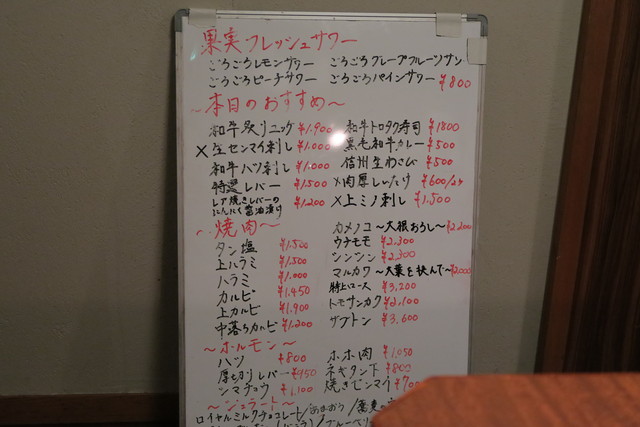 果実フレッシュサワー
ごろごろレモンサワー ごろごろグレープフルーツサン
ごろごろピーチサワー ごろごろパインサワー ¥800
～本日のおすすめ～
和牛炙りニング ¥1,900 和牛トロタク寿司 ¥1800
×生センマイ刺し ¥1,000 黒毛和牛カレー ¥500
和牛ハツ刺し ¥1,000 信州生わさび ¥500
特選レバー ¥1,500 ×肉厚しいたけ ¥600/2ヶ
レア焼きレバーのにんにく醤油漬け ¥1,200 ×上ミノ刺し ¥1,500
～焼肉～ カメノコ～大根おろし～ ¥2,200
タン塩 ¥1,500 ウチモモ ¥2,300
上ハラミ ¥1,500 シンシン ¥2,300
ハラミ ¥1,000 マルカワ～大葉を挟んで～ ¥2000
カルビ ¥1,450 特上ロース ¥3,200
上カルビ ¥1,900 トモサンカク ¥2,100
中落ちカルビ ¥1,200 ザブトン ¥3,600
～ホルモン～ ホホ肉 ¥1,050
ハツ ¥800 ネギタント ¥800
厚切りレバー ¥950 焼きセンマイ ¥700
シマチョウ ¥1,100
～ジェラート～
ロイヤルミルクチョコレート/あまおう/蕎麦の